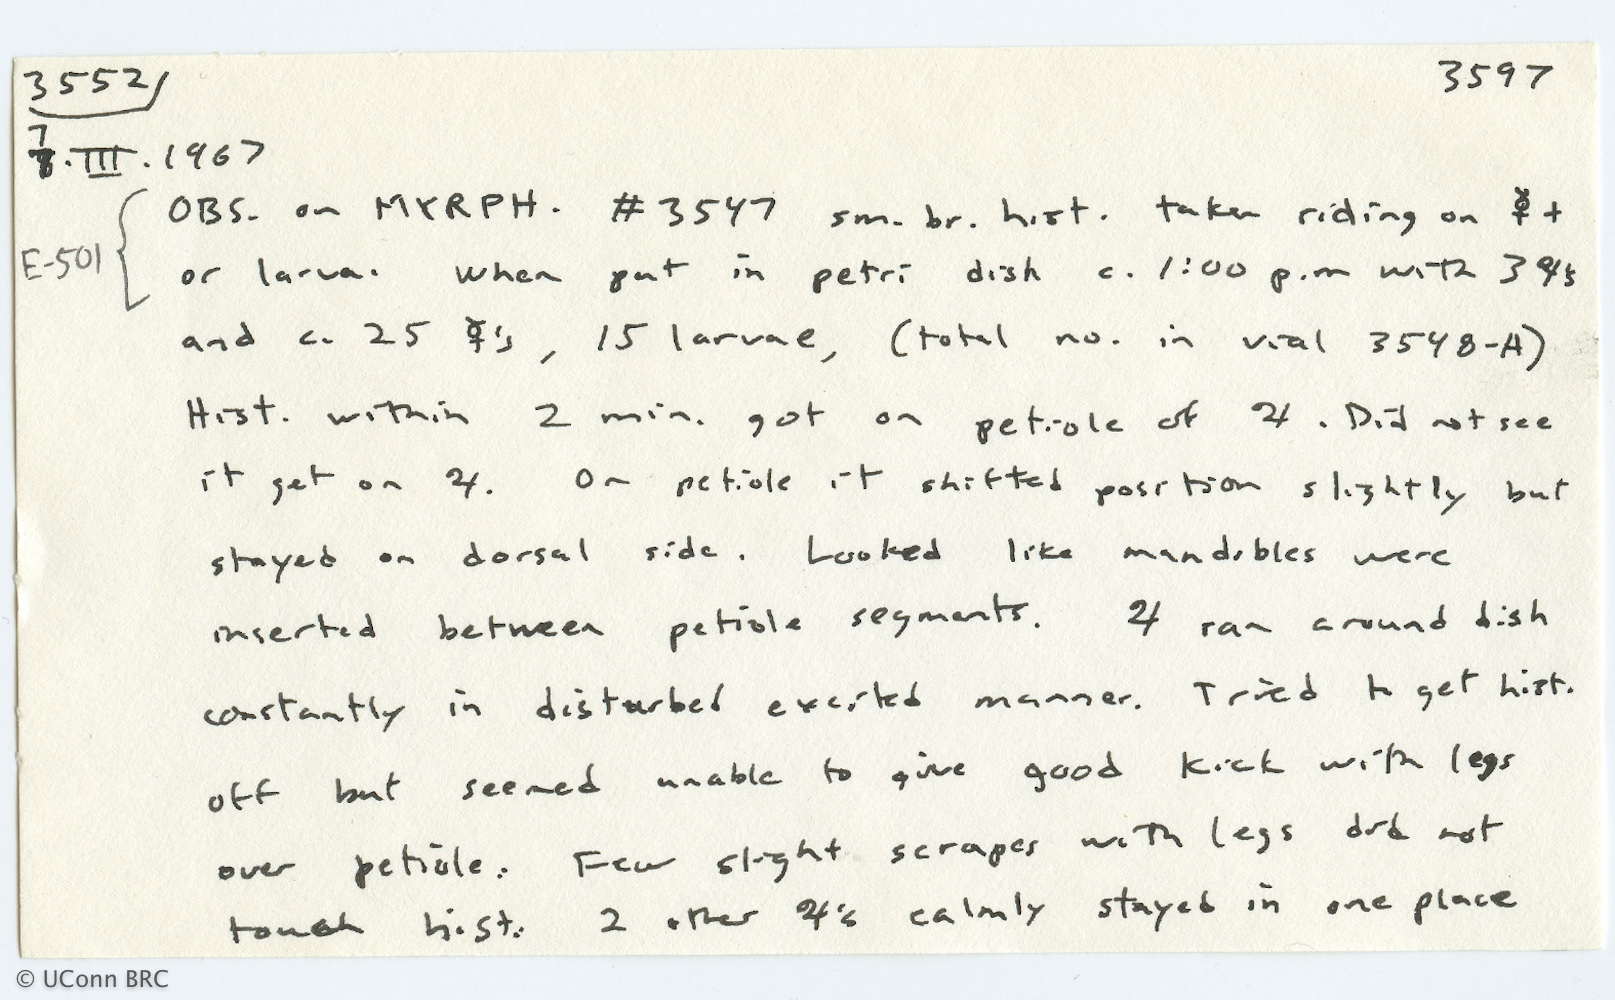 3552 3597
7.III.1967
OBS. on MYRPH. #3547 sm. br. hist. taken riding on ☿ +
E-501
or larva. When put in petri dish c. 1:00 p.m with 3 ♃'s
and c. 25 ☿'s, 15 larvae, (total no. in vial 3548-A)
Hist. within 2 min. got on petiole of ♃. Did not see
it get on ♃. On petiole it shifted position slightly but
stayed on dorsal side. Looked like mandibles were
inserted between petiole segments. ♃ ran around dish
constantly in disturbed excited manner. Tried to get hist.
off but seemed unable to give good kick with legs
over petiole. Few slight scrapes with legs did not
touch hist. 2 other ♃'s calmly stayed in one place
© UConn BRC